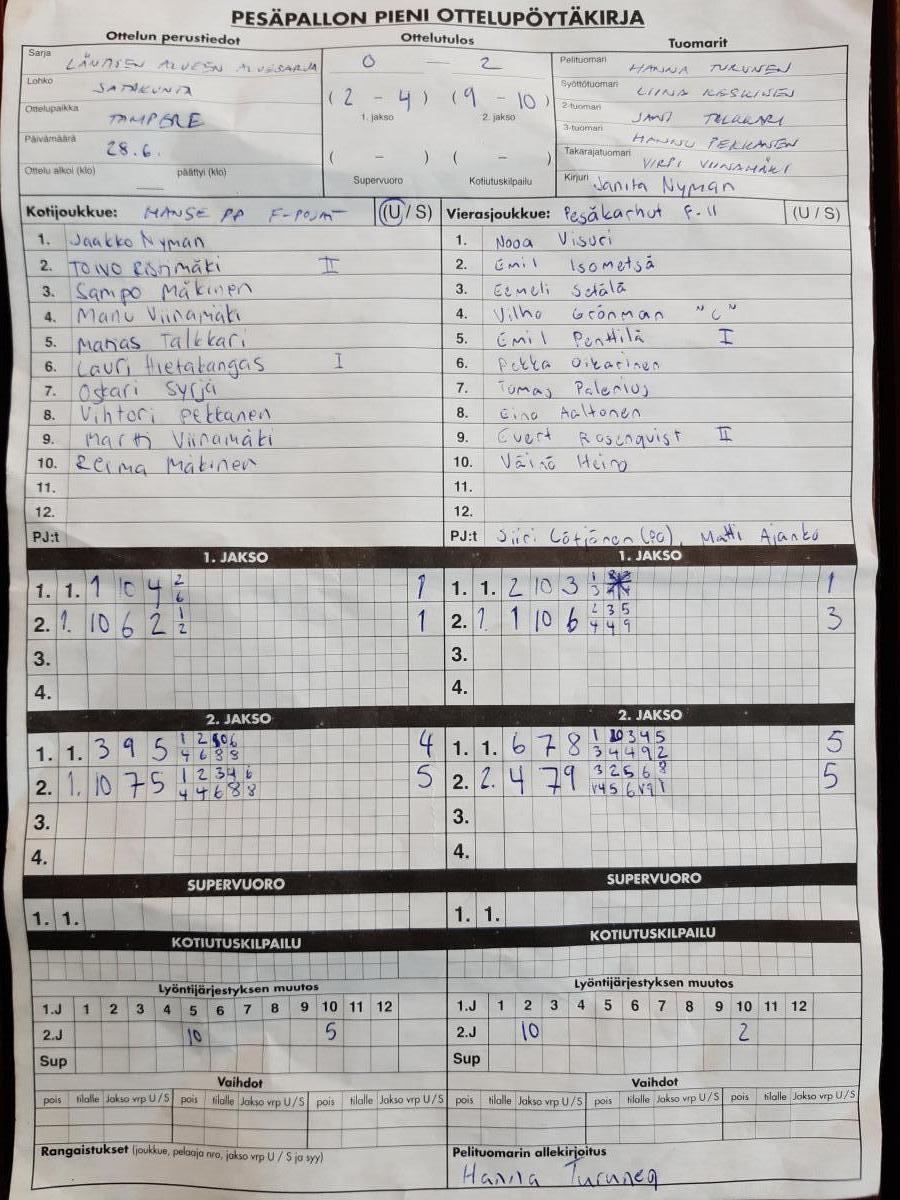 PESÄPALLON PIENI OTTELUPÖYTÄKIRJA
Ottelun perustiedot
Ottelutulos
Tuomarit
Sarja LÄNTISEN ALUEEN ALUESARJA
0 — 2
Pelituomari HANNA TURUNEN
Lohko SATAKUNTA
Syöttötuomari LIINA KESKINEN
Ottelupaikka TAMPERE
( 2 - 4 ) ( 9 - 10 )
1. jakso 2. jakso
2-tuomari JANI TALKKARI
Päivämäärä 28.6.
3-tuomari HANNU PEKKANEN
( - ) ( - )
Takarajatuomari VIRPI VIINAMÄKI
Ottelu alkoi (klo) päättyi (klo)
Supervuoro Kotiutuskilpailu
Kirjuri Janita Nyman
Kotijoukkue: MANSE PP F-POJAT (U / S)
Vierasjoukkue: Pesäkarhut F-11 (U / S)
1. Jaakko Nyman
1. Nooa Visuri
2. TOIVO Ristimäki II
2. Emil Isometsä
3. Sampo Mäkinen
3. Eemeli Setälä
4. Manu Viinamäki
4. Vilho Grönman "C"
5. Matias Talkkari
5. Emil Penttilä I
6. Lauri Hietakangas I
6. Pekka Oikarinen
7. Oskari Syrjä
7. Tomas Palenius
8. Vihtori Pekkanen
8. Eino Aaltonen
9. Martti Viinamäki
9. Evert Rosenquist II
10. Reima Mäkinen
10. Väinö Heino
11.
11.
12.
12.
PJ:t
PJ:t Siiri Lötjönen (PC), Matti Ajanko
1. JAKSO
1. JAKSO
1. 1. 1 10 4 2 1
6
1. 1. 2 10 3 1 1
3
2. 1. 10 6 2 1 1
2
2. 1. 1 10 6 2 3 5 3
4 4 9
3.
3.
4.
4.
2. JAKSO
2. JAKSO
1. 1. 3 9 5 1 2 6 4
4 6 8 8
1. 1. 6 7 8 1 10 3 4 5 5
3 4 4 9 2
2. 1. 10 7 5 1 2 3 4 6 5
4 4 6 8 8
2. 2. 4 7 9 3 2 5 6 8 5
3.
3.
4.
4.
SUPERVUORO
SUPERVUORO
1. 1.
1. 1.
KOTIUTUSKILPAILU
KOTIUTUSKILPAILU
Lyöntijärjestyksen muutos
Lyöntijärjestyksen muutos
1.J 1 2 3 4 5 6 7 8 9 10 11 12
1.J 1 2 3 4 5 6 7 8 9 10 11 12
2.J 10 5
2.J 10 2
Sup
Sup
Vaihdot
Vaihdot
pois tilalle Jakso vrp U / S pois tilalle Jakso vrp U / S pois tilalle Jakso vrp U / S
pois tilalle Jakso vrp U / S pois tilalle Jakso vrp U / S pois tilalle Jakso vrp U / S
Rangaistukset (joukkue, pelaaja nro, jakso vrp U / S ja syy)
Pelituomarin allekirjoitus
Hanna Turunen